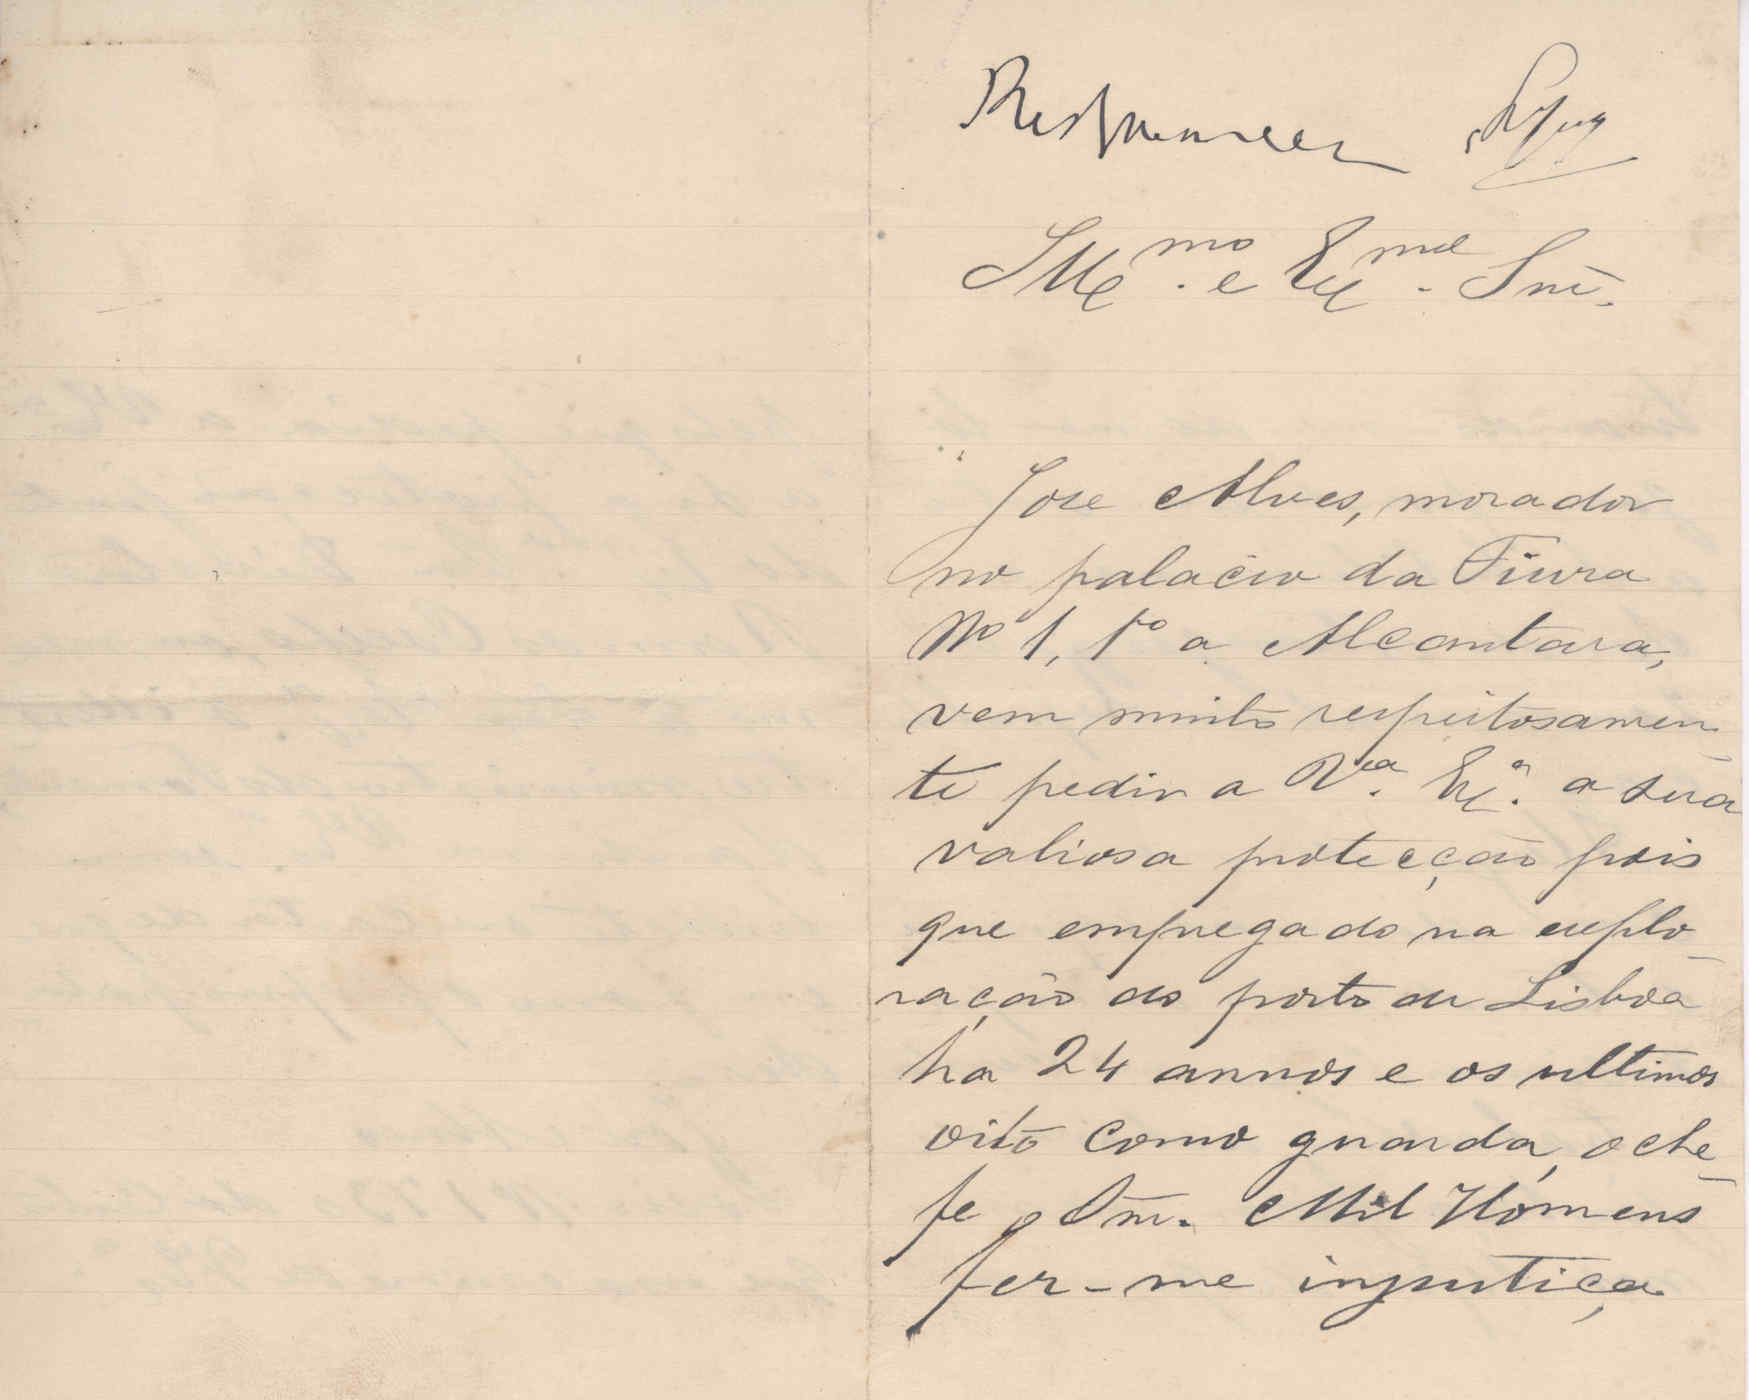 Illmo. e Exmo. Snr.
Jose Alves, morador
no palacio da
Nº 1, 1º a Alcantara,
vem muito respeitosamen
te pedir a Vª. Exª. a sua
valiosa protecção pois
que empregado na explo
ração do porto de Lisboa
ha 24 annos e os ultimos
oito como guarda, o che
fe o Snr. Mil Hómens
fez-me injustiça